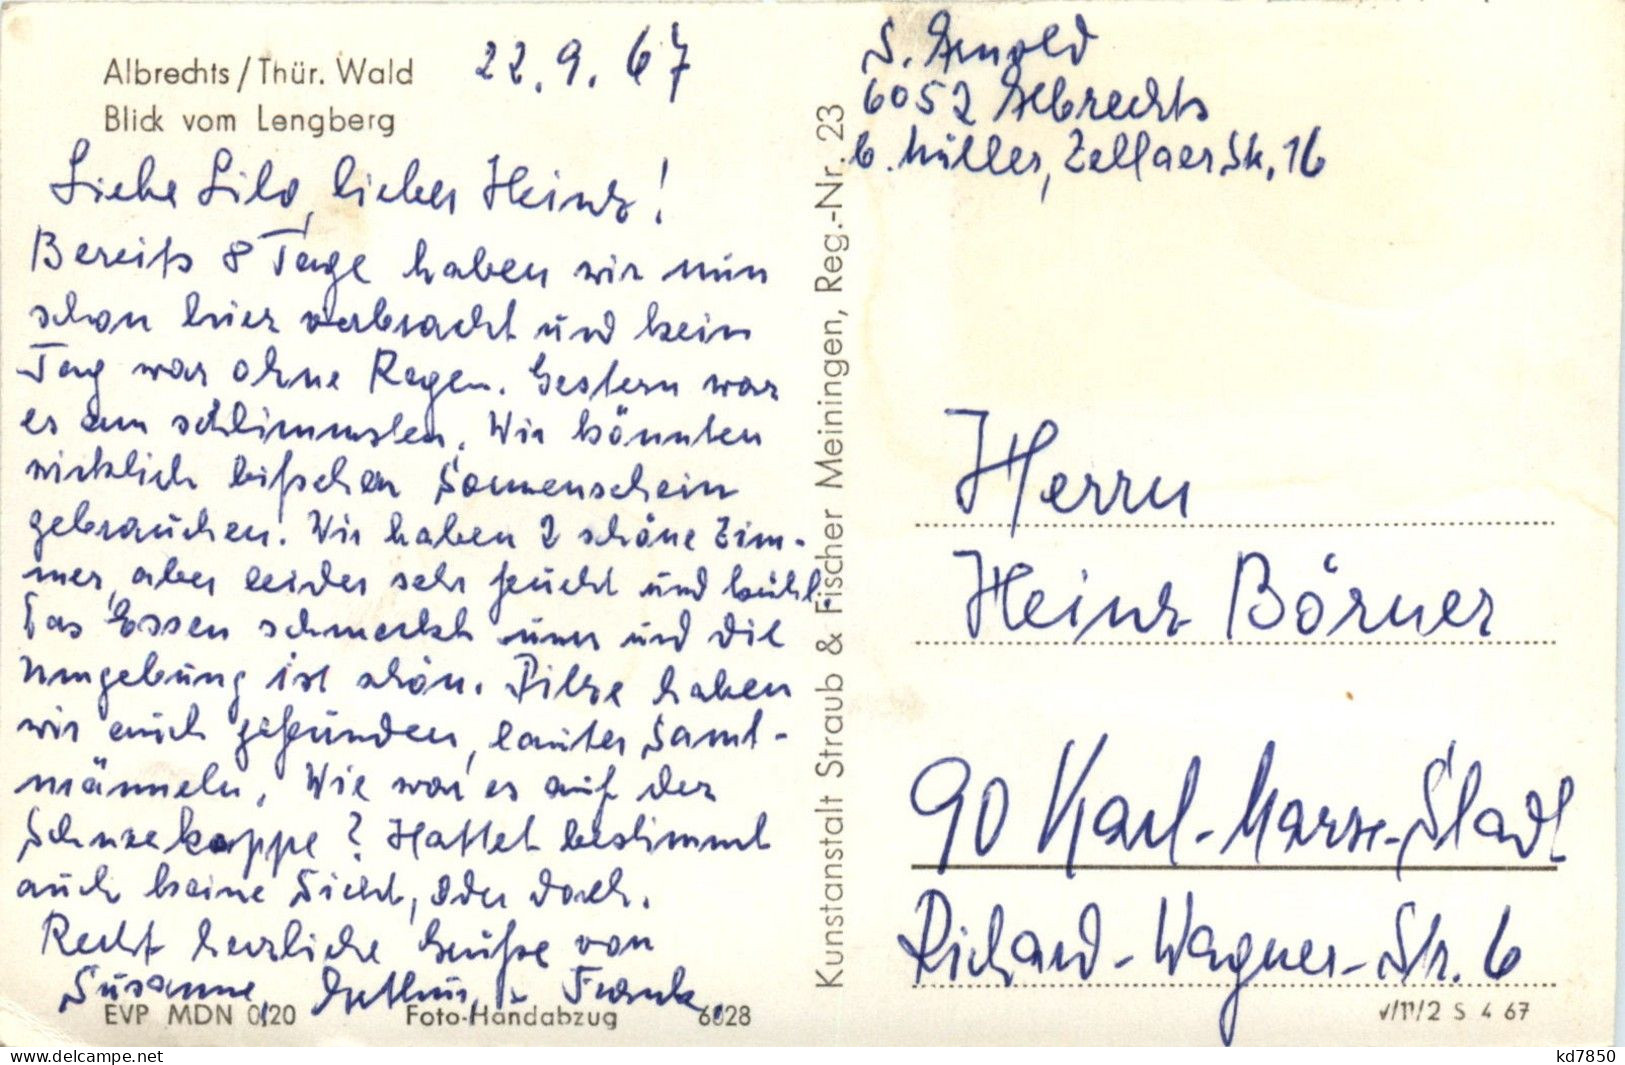 Albrechts / Thür. Wald
Blick vom Lengberg
22. 9. 67
Liebe Lilo, lieber Heinz!
Bereits 8 Tage haben wir nun
schon hier verbracht und kein
Tag war ohne Regen. Gestern war
es am schlimmsten. Wir könnten
wirklich bißchen Sonnenschein
gebrauchen. Wir haben 2 schöne Zim-
mer, aber leider sehr feucht und kühl.
Das Essen schmeckt uns und die
Umgebung ist schön. Pilze haben
wir auch gefunden, lauter Samt-
männeln. Wie war es auf der
Schneekoppe? Hattet bestimmt
auch keine Sicht, oder doch.
Recht herzliche Grüße von
Susanne, Arthur, u. Frank.
EVP MDN 0,20 Foto-Handabzug 6828
Kunstanstalt Straub & Fischer Meiningen, Reg.-Nr. 23
S. Arnold
6052 Albrechts
b. Müller, Zellaer Str. 16
Herrn
Heinz Börner
90 Karl-Marx-Stadt
Richard-Wagner-Str. 6
V/11/2 S 4 67
www.delcampe.net
kd7850